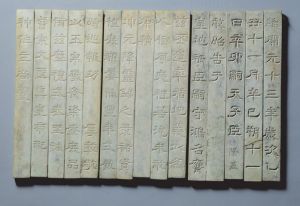 惟開元十三年歲次乙
丑十一月辛巳朔十一
日辛卯嗣天子臣隆基
敢昭告于
皇地祇臣嗣守鴻名膺
茲丕運率循地義以為
人極夙夜祗若汔未敢
康賴
坤元降靈錫之景祐資
植庶類屢惟豐年式展
時巡報功厚載敬
以玉帛犧齊粢盛庶品
備茲瘞禮式表至誠
睿宗大聖真皇帝配
神作主尚饗